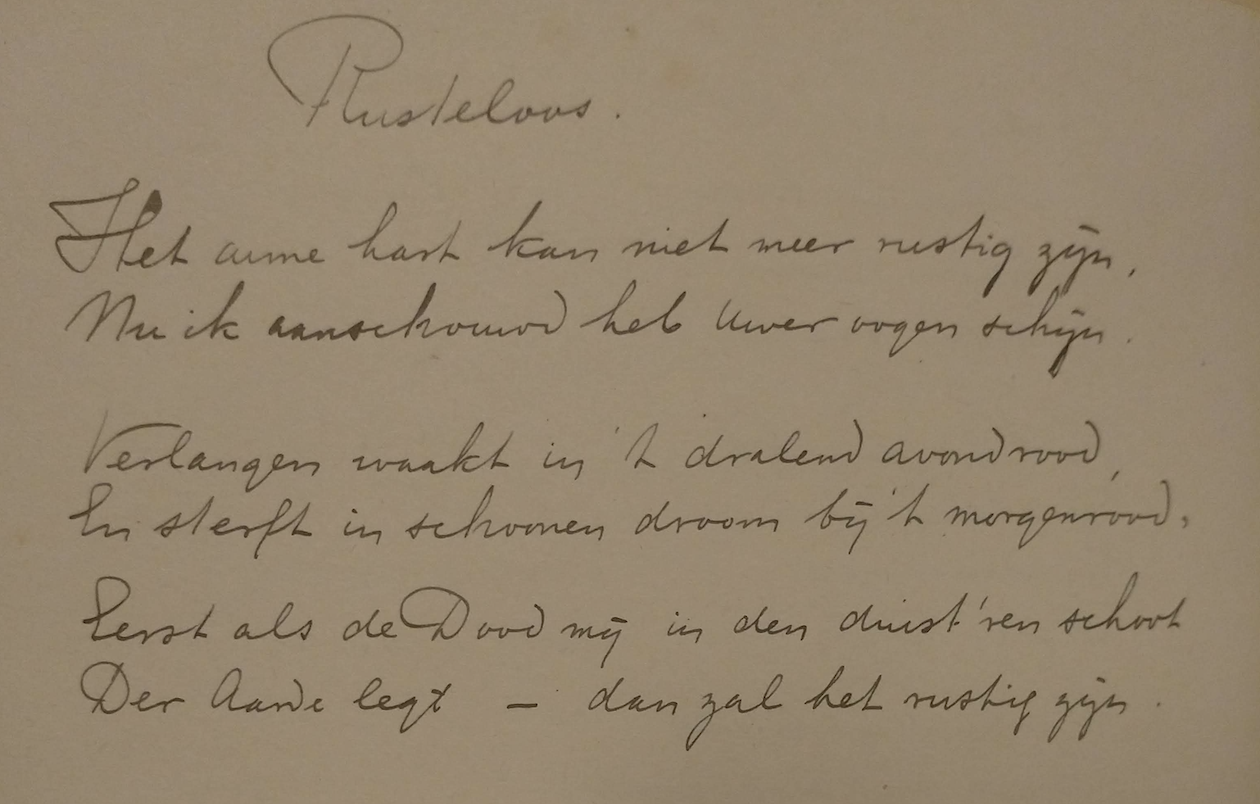 Rusteloos.
Het arme hart kan niet meer rustig zijn,
Nu ik aanschouwd heb Uwer oogen schijn.
Verlangen waakt in 't dralend avondrood,
En sterft in schoonen droom bij 't morgenrood.
Eerst als de Dood mij in den duist'ren schoot
Der Aarde legt – dan zal het rustig zijn.